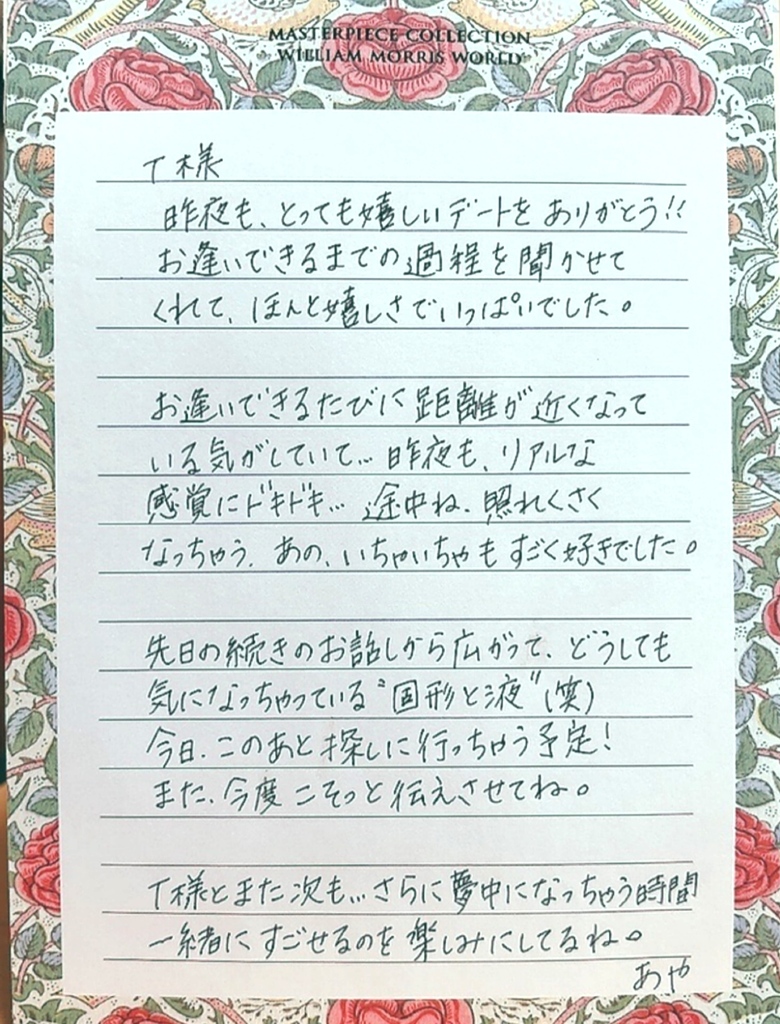 MASTERPIECE COLLECTION
WILLIAM MORRIS WORLD
T様
昨夜も、とっても嬉しいデートをありがとう!!
お逢いできるまでの過程を聞かせて
くれて、ほんと嬉しさでいっぱいでした。
お逢いできるたびに距離が近くなって
いる気がしていて… 昨夜も、リアルな
感覚にドキドキ… 途中ね、照れくさく
なっちゃう、あの、いちゃいちゃもすごく好きでした。
先日の続きのお話しから広がって、どうしても
気になっちゃっている"固形と液"(笑)
今日、このあと探しに行っちゃう予定!
また、今度こそっと伝えさせてね。
T様とまた次も…さらに夢中になっちゃう時間
一緒にすごせるのを楽しみにしてるね。
あや